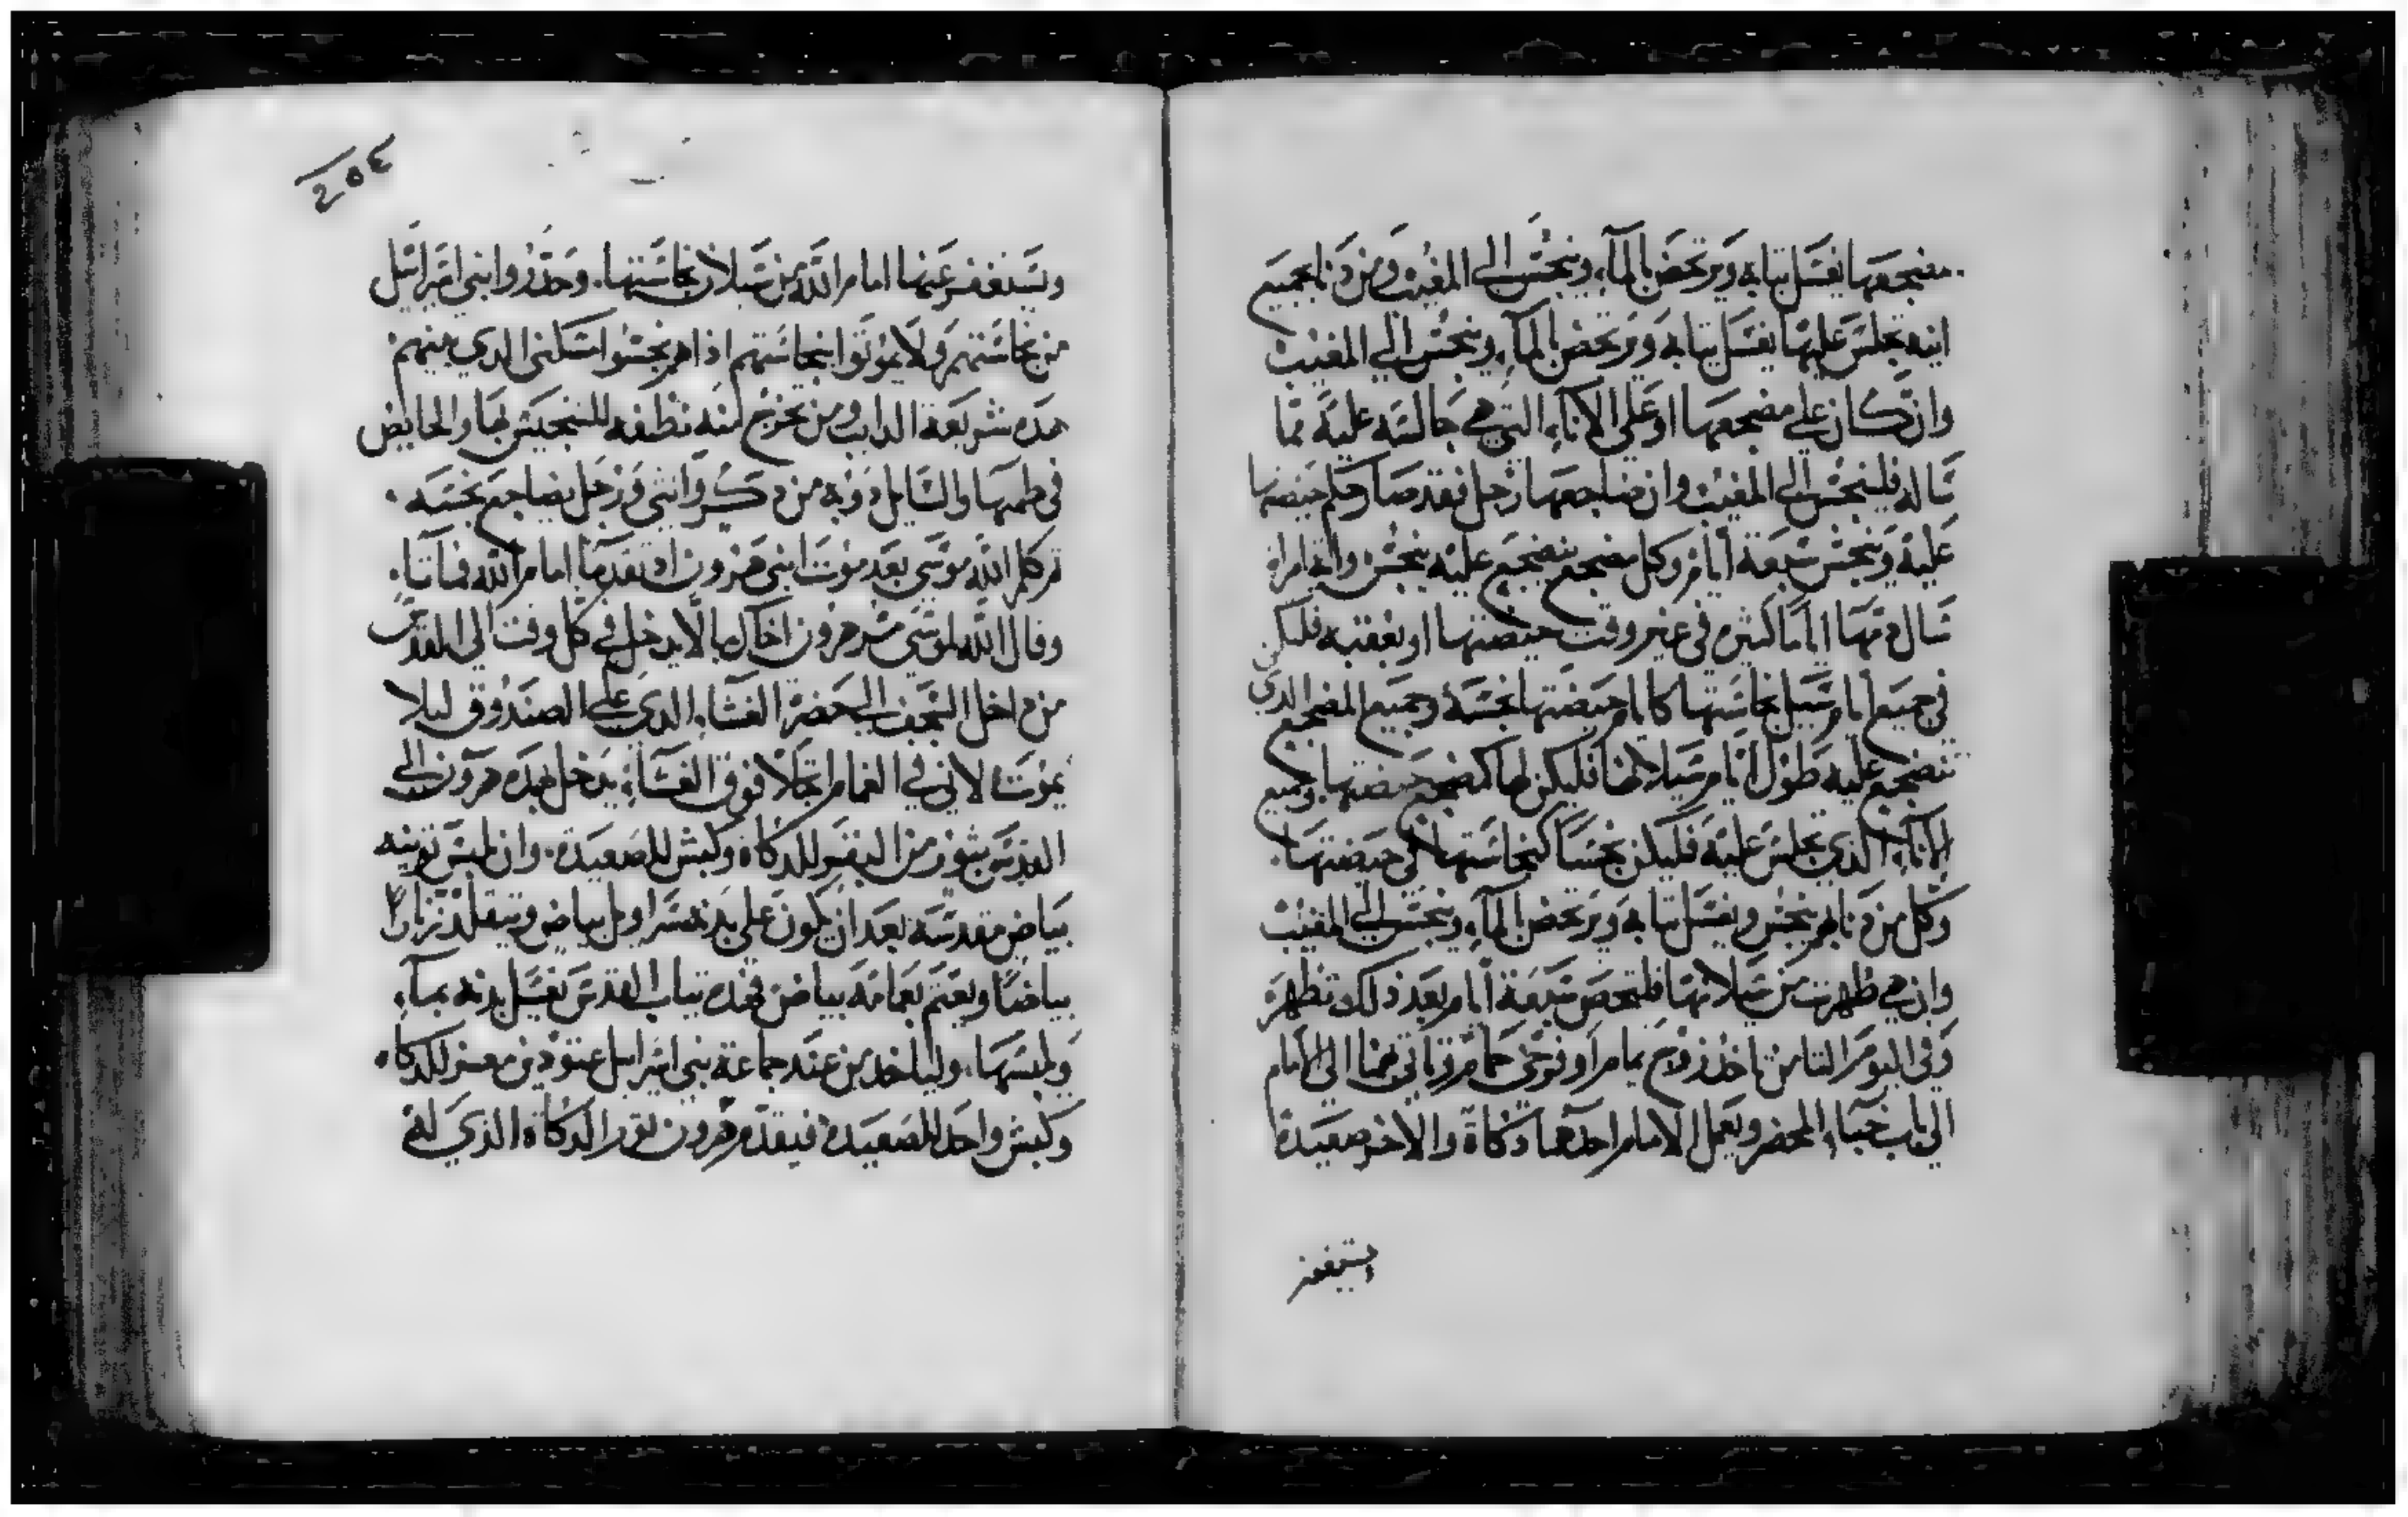 مضجعها يغسل تيابه ويرتحض بالمآء وينجس الي المغيب ومن دنا بجميع
انيه تجلس عليها يغسل تيابه ويرتحض بالمآء وينجس الي المغيب
وان كان علي مضجعها او علي الاناء التي هي جالسه عليه مما
تاله فلينجس الي المغيب وان ضاجعها رجل فقد صار حكم حيضها
عليه وينجس سبعة أيام وكل مضجع ينضجع عليه ينجس وايه امراه
سال دمها اياما كثيره في غير وقت حيضتها او بعقبه فليكن
في جميع أيام سيل نجاستها كايام حيضتها نجسه وجميع المضجع الدي
تنضجع عليه طول أيام سيلانها فليكن لها كمضجع حيضتها وجميع
الاناء الذي تجلس عليه فليكن نجسا كنجاستها في حيضتها
وكل من دنا بهم ينجس ويغسل تيابه ويرتحض بالمآء وينجس الي المغيب
وان هي طهرت من سيلانها فلتحص سبعة أيام بعد ذلك تطهر
وفي اليوم التامن تاخذ زوج يمام او فرخي حمام وتاتي بهما الي الامام
الي باب خباء المحضر ويعمل الامام احدهما دكاة والاخر صعيدة
ويستغفر
٢٥٤
ويستغفر عنها امام الله من سيلان نجاستها. وحذروا بني اسرائيل
من نجاستهم ولا يموتوا بنجاستهم اذا هم نجسوا مسكني الدي بينهم
هده شريعة الدايب ومن يخرج منه نطفه للتنجيس بها والحايض
في طمتها والسايل دوبه من دكر وانتي ورجل يضاجع نجسه.
تم كلم الله موسي بعد موت ابني هرون اد تقدما امام الله فماتا.
وقال الله لموسي مر هرون اخاك بالا يدخل في كل وقت الي القدس
من داخل السجف الي حضرة الغشاء الدي علي الصندوق ليلا
يموت لاني في الغمام اتجلا فوق الغشاء يدخل بهده هرون الي
القدس بتور من البقر للدكاة وكبش للصعيدة. وان يلبس تونيه
بياض مقدسه بعد ان يكون علي بدنه سراويل بياض ويتقلد زنارا
بياضا ويعتم بعمامه بياض فهذه تياب القدس يغسل بدنه بمآء
ويلبسها. ولياخد من عند جماعة بني اسرايل عتودين معز للدكاه
وكبش واحد للصعيده فيقدم هرون تور الدكاة الذي له